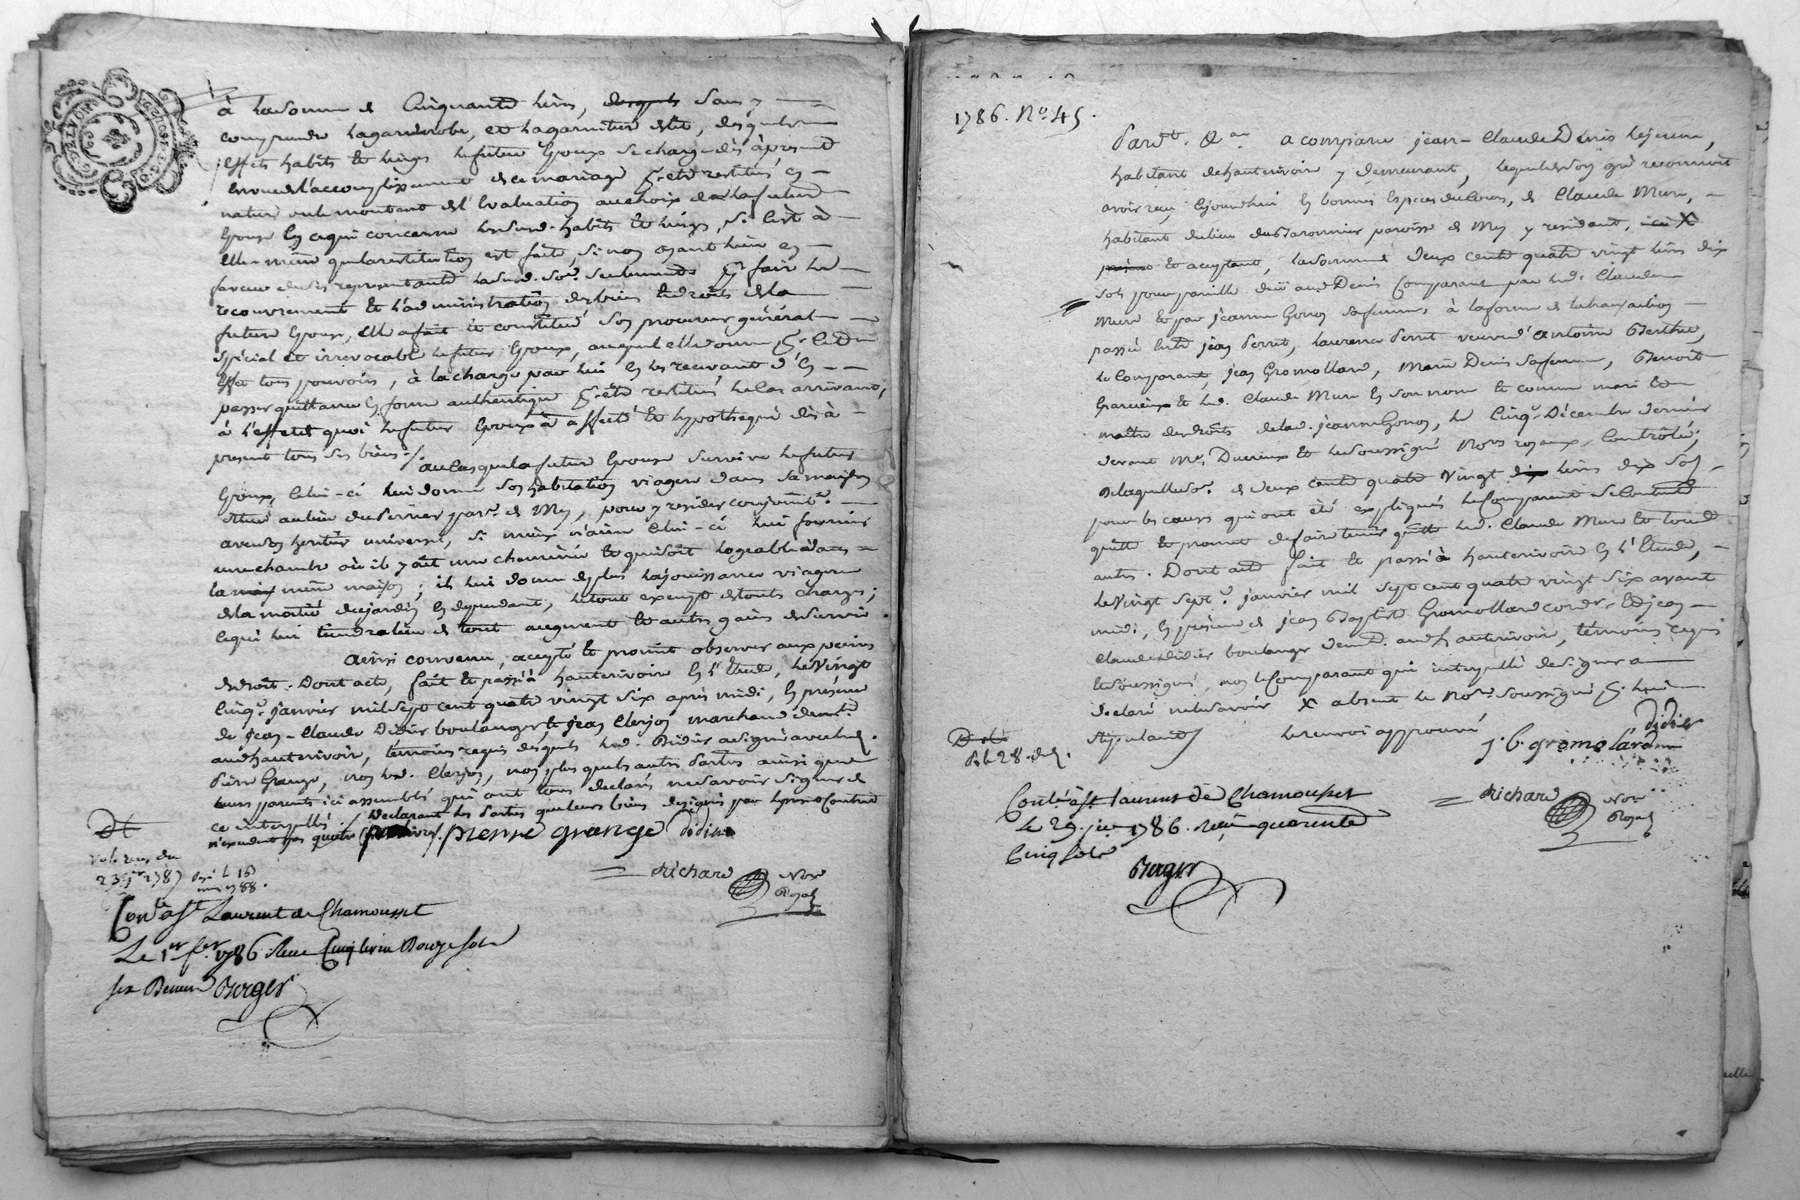 à la somme de Cinquante livres, desquels sans y
comprendre la garderobe, et la garniture de lit, desquels
effets habits et linges le futur Epoux se charge dès à présent
l'accomplissement de ce mariage pr. etre restitués en
nature ou le montant de l'Evaluation au choix de la future
Epouse en ce qui concerne les susd. habits et linges, si c'est à
elle même que la restitution est faite, si non ayant lieu en
faveur de ses représentants la susd. somme seulement. pr. faire le
recouvrement et l'administration des biens et droits de la
future Epouse, elle a fait et constitué son procureur général
spécial et irrevocable le futur Epoux, auquel elle donne pr. cet
effet tous pouvoirs, à la charge par lui en les recevant d'en
passer quittance en forme authentique pr. etre restitués le cas arrivant,
à l'effet de quoi le futur Epoux a affecté et hypothéqué dès à
présent tous ses biens ./.
au cas que la future Epouse survive le futur
Epoux, celui-ci lui donne son habitation viagere dans sa maison
située au lieu du Perrier parse. de Mey, pour y resider conjointemt.
avec son heritier universel, si mieux n'aime celui-ci lui fournir
une chambre où il y ait une cheminée et qui soit logeable dans
la même maison; il lui donne de plus la jouissance viagere
de la moitié du jardin en dépendant, le tout exempt de toute charge;
ce qui lui tiendra lieu de tout augment et autres gains de survie
ainsi convenu, accepté et promit observer aux peines
de droit. Dont acte, fait et passé à hauterivoire en l'Etude, le vingt
cinq. janvier mil sept cent quatre vingt six après midi, en présence
de jean-Claude Didier boulanger, et jean Clerjon marchand demt.
aud. hauterivoir, témoins requis desquels led. Didier a signé avec led.
pierre Grange, non led. Clerjon, non plus que les autres parties ainsi que
leurs parents ici assemblés qui ont tous declaré ne savoir signer de
ce interpellés. / Declarant les parties que leurs biens designés par le present Contrat
n'excedent pas quatre livres. pierre grange didier
Richard Nore
Royal
23 1787
1788.
Con.lé à St Laurent de Chamousset
Le 1er fer. 1786. Reçu Cinq livres Douze sols
six Deniers Berger
1786. No. 45.
Pardt. &a. a comparu jean-Claude Denis le jeune,
habitant de hauterivoir y demeurant, lequel de son gré reconnoit
avoir reçu cejourdhui en bonnes Especes de cours, de Claude Mure,
habitant du lieu du Baronnier paroisse de Mey y residant, ici X
présent et acceptant, la somme de deux cents quatre vingt livres dix
sols pour pareille due aud Denis Comparant par led. Claude
Mure et par jeanne Gonon sa femme, à la forme de la transaction
passée entre jean Perret, laurence Perret veuve d'antoine Berthet,
le Comparant, jean Gromollard, Marie Denis sa femme, Benoit
Gravieux et led. Claude Mure en son nom et comme mari et
maître des droits de lad. jeanne Gonon, le cinq. Décembre dernier
devant Me. Ducreux et le soussigné Nores royaux, Contrôlée;
De laquelle so. de deux cents quatre vingt dix livres dix sols
pour les causes qui ont été expliquées le Comparant se Contente
quitte et promet de faire tenir quitte led. Claude Mure et tous
autres. Dont acte fait et passé à hauterivoire en l'Etude,
le vingt sept. janvier mil sept cent quatre vingt six avant
midi, en présence de jean Baptiste Gromollard cordr. et de jean
Claude Didier boulanger demt. aud hauterivoir, témoins requis
et soussignés, non le Comparant qui interpellé de signer a
declaré ne le savoir X absent le Nore. soussigné pr. lui
stipulant le renvoi approuvé didier
j. b. gromolard
Richard Nore
Royal
28
Conlé à St. laurent de Chamousset
Le 29. jer. 1786. reçu quarente
Cinq sols
Berger